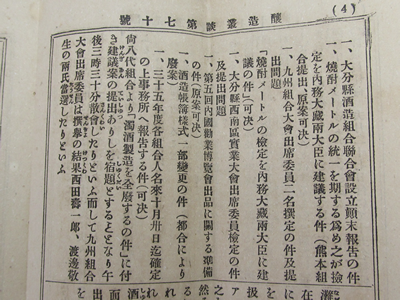 (4)
釀造叢談第七十號
一、大分縣酒造組合聯合會設立顚末報告の件
一、燒酎メートルの統一を期する爲め之が撿
定を內務大藏兩大臣に建議する件(熊本組
合提出、原案可決)
一、九州組合大會出席委員二名撰定の件及提
出問題
「燒酎メートルの檢定を內務大藏兩大臣に建
議の件」(可決)
一、大分縣西南區實業大會出席委員檢定の件
及提出問題
一、第五回內國勸業博覽會出品に關する準備
の件(原案可決)
一、酒造帳簿樣式一部變更の件(都合により
廢案)
一、三十五年度各組合人名來十月卅日迄確定
の上事務所へ報告する件(可決)
尙八代組合より「濁酒製造を全廢するの件」に付
き建議案の提出ありしを宿題とすることとなり午
後三時三十分散會したりといふ而して九州組合
大會出席委員は撰擧の結果西田壽一郞、渡邊敬
生の兩氏當選したりといふ